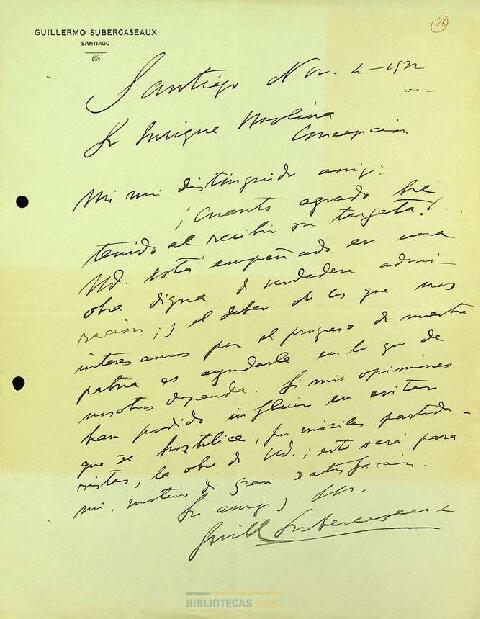 GUILLERMO SUBERCASEAUX
SANTIAGO
Santiago Nov. 4-192
Sr Enrique Molina
Concepción
Mi muy distinguido amigo:
¡Cuanto agrado he
tenido al recibir su targeta!
Ud. está empeñado en una
obra digna de verdadera admi-
racion; y el deber de los que nos
interesamos por el progreso de nuestra
patria es ayudarle en lo que de
nosotros dependa. Si mis opiniones
han podido influir en evitar
que se hostilice, por móviles partida-
ristas, la obra de Ud.; esto será para
mi motivo de gran satisfaccion.
Su amigo y
Guill Subercaseaux
BIBLIOTECAS